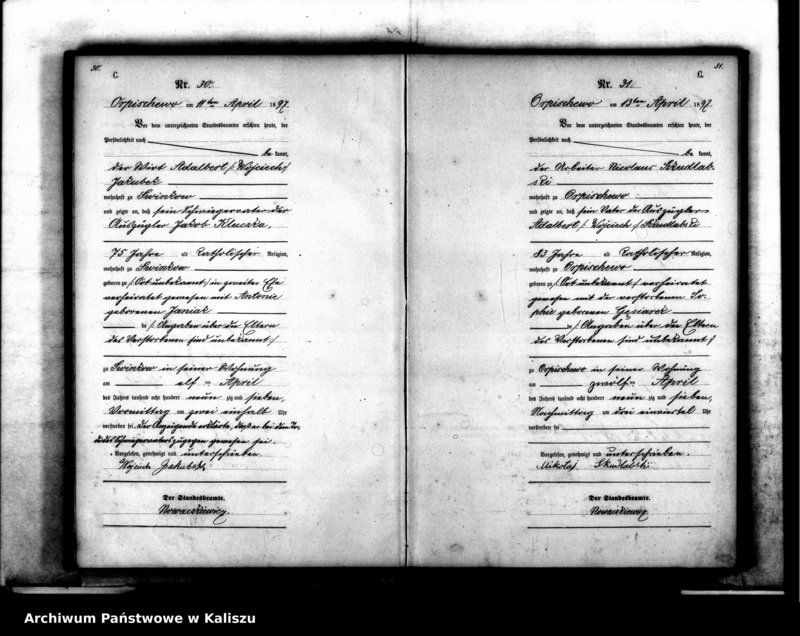 30.
C.
Nr. 30.
Orpischewo am 11ten April 1897.
Vor dem unterzeichneten Standesbeamten erschien heute, der
Persönlichkeit nach
be kannt,
der Wirt Adalbert /: Wojciech :/
Jakubek
wohnhaft zu Swinkow
und zeigte an, daß sein Schwiegervater der
Auszügler Jakob Kluczka,
75 Jahre alt katholischer Religion,
wohnhaft zu Swinkow
geboren zu /: Ort unbekannt :/ in zweiter Ehe
verheiratet gewesen mit Antonie
geborenen Janiak
/: Angaben über die Eltern
des Verstorbenen sind unbekannt :/
zu Swinkow in seiner Wohnung
am elf ten April
des Jahres tausend acht hundert neun zig und sieben,
Vormittag um zwei einhalb Uhr
verstorben sei. Der Anzeigende erklärte, daß er bei dem To-
de des Schwiegervaters zugegen gewesen sei.
Vorgelesen, genehmigt und unterschrieben.
Jakubek
Der Standesbeamte.
Nowaczkiewicz.
31.
C.
Nr. 31.
Orpischewo am 13ten April 1897.
Vor dem unterzeichneten Standesbeamten erschien heute, der
Persönlichkeit nach
be kannt,
der Arbeiter Nicolaus Skudlab-
ski
wohnhaft zu Orpischewo
und zeigte an, daß sein Vater der Auszügler
Adalbert /: Wojciech :/ Skudlabski
83 Jahre alt katholischer Religion,
wohnhaft zu Orpischewo
geboren zu /: Ort unbekannt :/ verheiratet
gewesen mit der verstorbenen So-
phie geborenen
/: Angaben über die Eltern
des Verstorbenen sind unbekannt :/
zu Orpischewo in seiner Wohnung
am zwölf ten April
des Jahres tausend acht hundert neun zig und sieben,
Nachmittag um drei einviertel Uhr
verstorben sei
Vorgelesen, genehmigt und unterschrieben.
Mikołaj
Der Standesbeamte.
Nowaczkiewicz
Archiwum Państwowe w Kaliszu